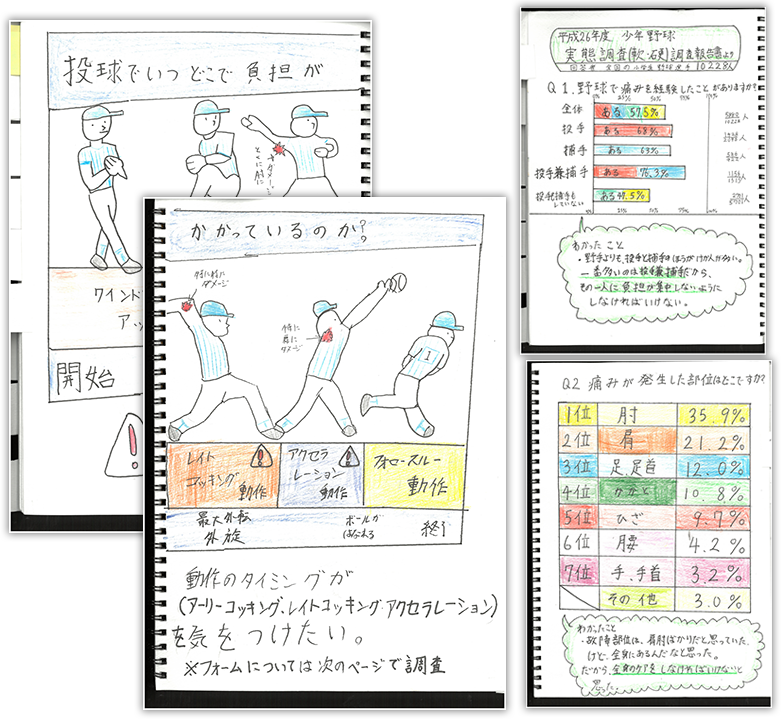 投球でいつどこで負担が
とくに肘に
ダメージ
ワインド
アッ
開始
かかっているのか??
特に肘に
ダメージ
特に
肩に
ダメージ
1
レイト
コッキング
動作
アクセラ
レーション
動作
フォロースルー
動作
最大外転
外旋
ボールが
はなれる
終り
動作のタイミングが
(アーリーコッキング、レイトコッキング、アクセラレーション)
を気をつけたい。
※フォームについては次のページで調査
平成26年度 少年野球
実態調査(軟・硬)調査報告書より
回答者 全国の小学生野球選手 10228人
Q1.野球で痛みを経験したことがありますか?
0% 25% 50% 75% 100%
全体 ある 57.5% 人
投手 ある 68% 人
捕手 ある 63% 人
投手兼捕手 ある 76.3% 人
投手捕手も
していない ある49.5% 人
0% 25% 50% 75% 100%
わかったこと
・野手よりも、投手と捕手のほうがけが人が多い。
一番多いのは投手兼捕手だから、
その一人に負担が集中しないように
しなければいけない。
Q2 痛みが発生した部位はどこですか?
1位 肘 35.9%
2位 肩 21.2%
3位 足、足首 12.0%
4位 かかと 10.8%
5位 ひざ 9.7%
6位 腰 4.2%
7位 手、手首 3.2%
その他 3.0%
わかったこと
・故障部位は、肩肘ばかりだと思っていた
けど、全身にあるんだなと思った。
だから、全身のケアをしなければいけないと
思った